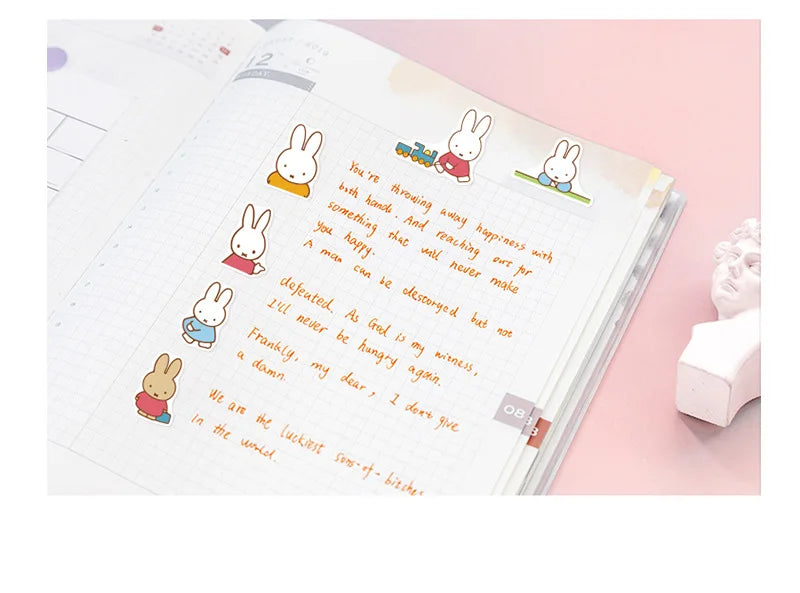 2019
12
You're throwing away happiness with
both hands. And reaching out for
something that will never make
you happy.
A man can be destoryed but not
defeated. As God is my witness,
I'll never be hungry again.
Frankly, my dear, I don't give
a damn.
We are the luckiest sons-of-bitches
in the world.
08